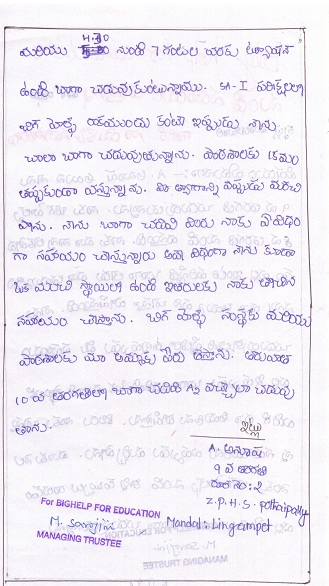 మరియు 4-30 నుండి 7 గంటల వరకు ట్యూషన్
ఉండి బాగా చదువుకుంటున్నాము. SA-I పరీక్షలలో
బిగ్ హెల్ప్ రాకముందు కంటే ఇప్పుడు నేను
చాలా బాగా చదువుతున్నాను. పాఠశాలకు క్రమం
తప్పకుండా వస్తున్నాను. మీ త్యాగాన్ని ఎప్పుడు మరచి
పోను. నేను బాగా చదివి మీరు నాకు ఏవిధం
గా సహాయం చేస్తున్నారు అదే విధంగా నేను కూడా
ఒక మంచి స్థాయిలో ఉండి ఇతరులకు నాకు తోచిన
సహాయం చేస్తాను. బిగ్ హెల్ప్ సంస్థకు మరియు
పాఠశాలకు మా అమ్మకు పేరు తెస్తాను. తరువాత
10 వ తరగతిలో బాగా చదివి A2 వచ్చేలా చదువు
తాను.
ఇట్లు
A. అనూష
9 వ తరగతి
రూల్ నం: 2
Z.P.H.S. pothaipally
Mandal: Lingampet
For BIGHELP FOR EDUCATION
M. Sarojini
MANAGING TRUSTEE